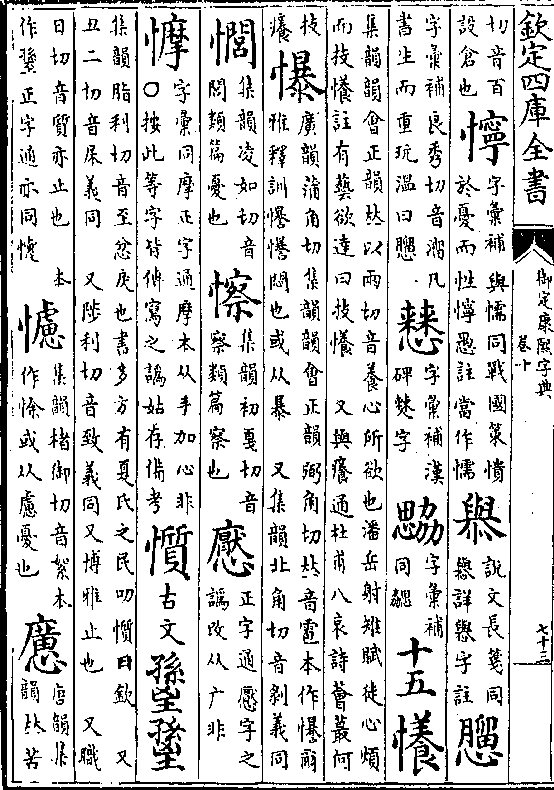 欽定四庫全書
御定康熙字典
卷十
七十三
切音百
設倉也
懧
字彙補與懦同戰國策憒
於憂而性懧愚註當作懦
說文長箋同
懇詳懇字註
字彙補良秀切音溜凡
書生而重玩溫曰
字彙補漢
碑愁字
字彙補
同勰
十五
懩
集韻韻會正韻𠀤以兩切音養心所欲也潘岳射雉賦徒心煩
而技懩註有藝欲達曰技懩 又與癢通杜甫八哀詩薈蕞何
技
癢
懪
廣韻蒲角切集韻韻會正韻弼角切𠀤音雹本作懪爾
雅釋訓懪懪悶也或从暴 又集韻北角切音剝義同
集韻凌如切音
閭類篇憂也
集韻初戛切音
察類篇察也
正字通懕字之
譌改从广非
字彙同摩正字通摩本从手加心非
○按此等字皆傳寫之譌姑存備考
懫
古文
集韻脂利切音至忿戾也書多方有夏氏之民叨懫日欽 又
丑二切音杘義同 又陟利切音致義同又博雅止也 又職
日切音質亦止也 本
作 正字通亦同懥
集韻楮御切音絮本
作悇或从慮憂也
懬
唐韻集
韻𠀤苦